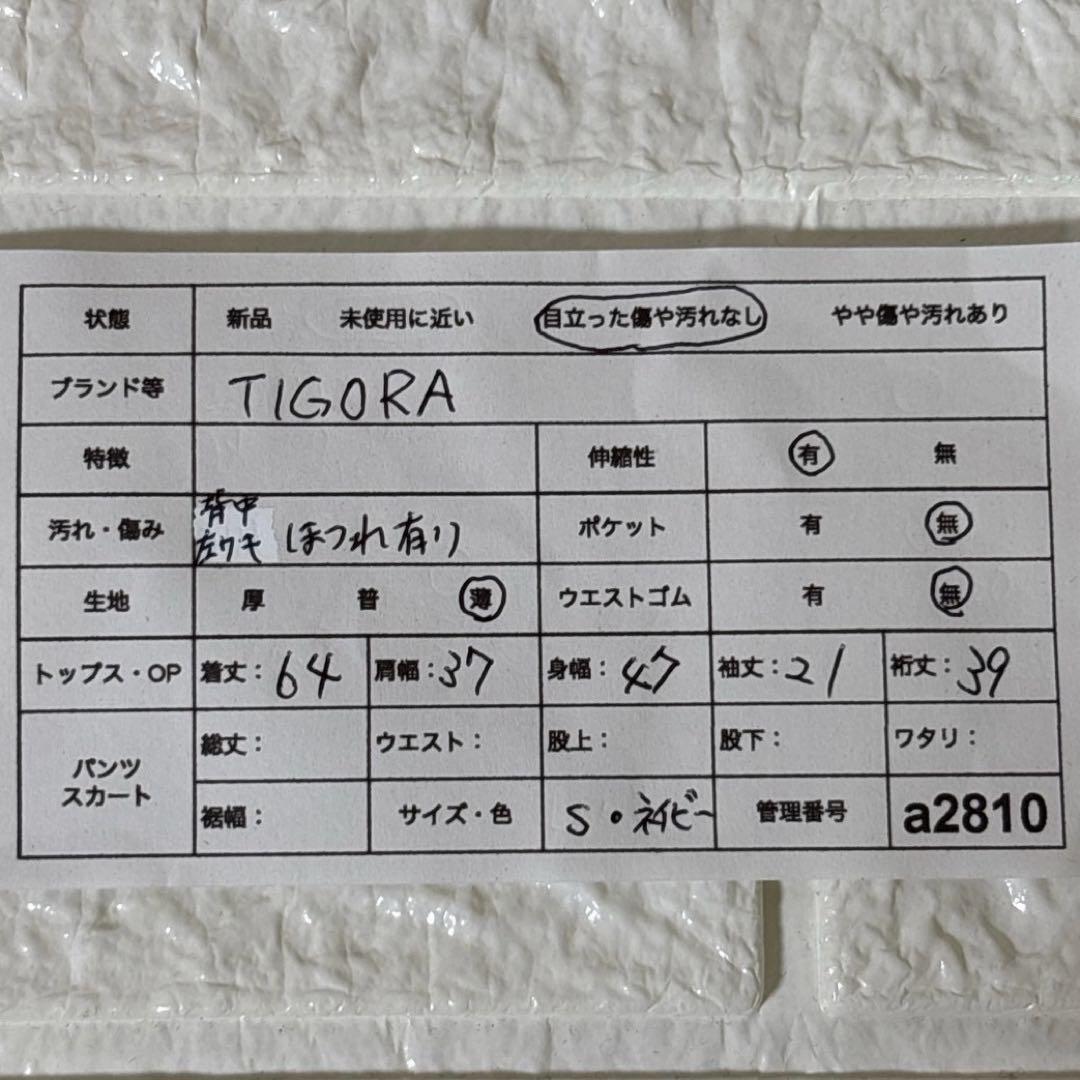 状態 新品 未使用に近い 目立った傷や汚れなし やや傷や汚れあり
ブランド等 TIGORA
特徴 伸縮性 有 無
汚れ・傷み 背中 左ワキ ほつれ有り ポケット 有 無
生地 厚 普 薄 ウエストゴム 有 無
トップス・OP 着丈：64 肩幅：37 身幅：47 袖丈：21 裄丈：39
パンツ スカート 総丈： ウエスト： 股上： 股下： ワタリ：
裾幅： サイズ・色 S・ネイビー 管理番号 a2810